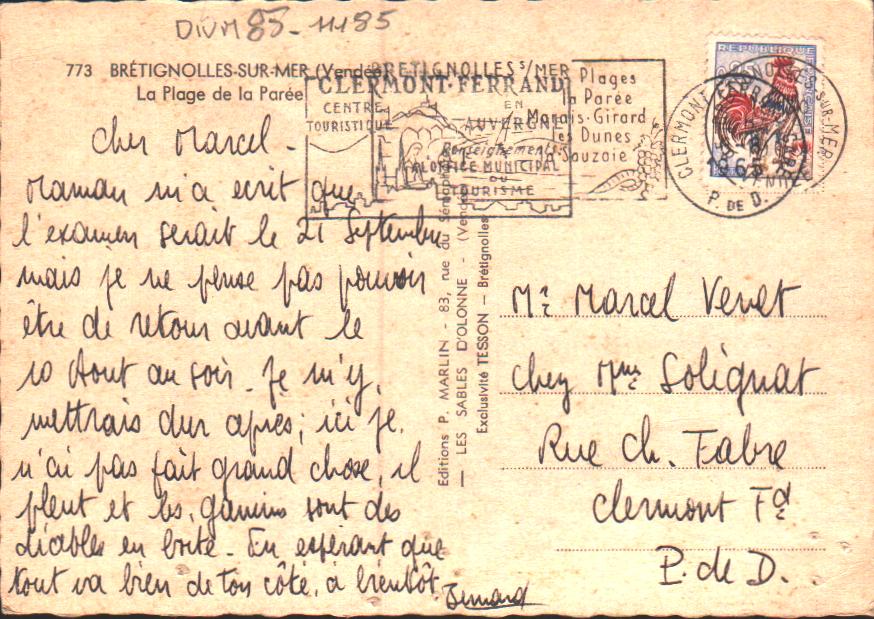 DIVM 85-1185
773 BRÉTIGNOLLES-SUR-MER (Vendée)
La Plage de la Parée
BRETIGNOLLES S/MER
Plages
la Parée
Marais-Girard
les Dunes
la Sauzaie
CLERMONT-FERRAND
CENTRE
TOURISTIQUE
EN
AUVERGNE
Renseignements
OFFICE MUNICIPAL
DU
TOURISME
REPUBLIQUE FRANCAISE
0,25
CLERMONT-FERRAND
P. DE D.
SUR-MER
Cher Marcel -
Maman m'a ecrit que
l'examen serait le 21 Septembre
mais je ne pense pas pouvoir
être de retour avant le
10 Aout au soir. Je m'y
mettrais dur après; ici je
n'ai pas fait grand chose, il
pleut et les gamins sont des
diables en boite - En espérant que
tout va bien de ton côté, à bientôt.
Bernard
Editions P. MARLIN - 83, rue du Sémaphore
— LES SABLES D'OLONNE - (Vendée)
Exclusivité TESSON — Brétignolles
Mr Marcel Venet
chez Mme Solignat
Rue Ch. Fabre
Clermont Fd
P. de D.